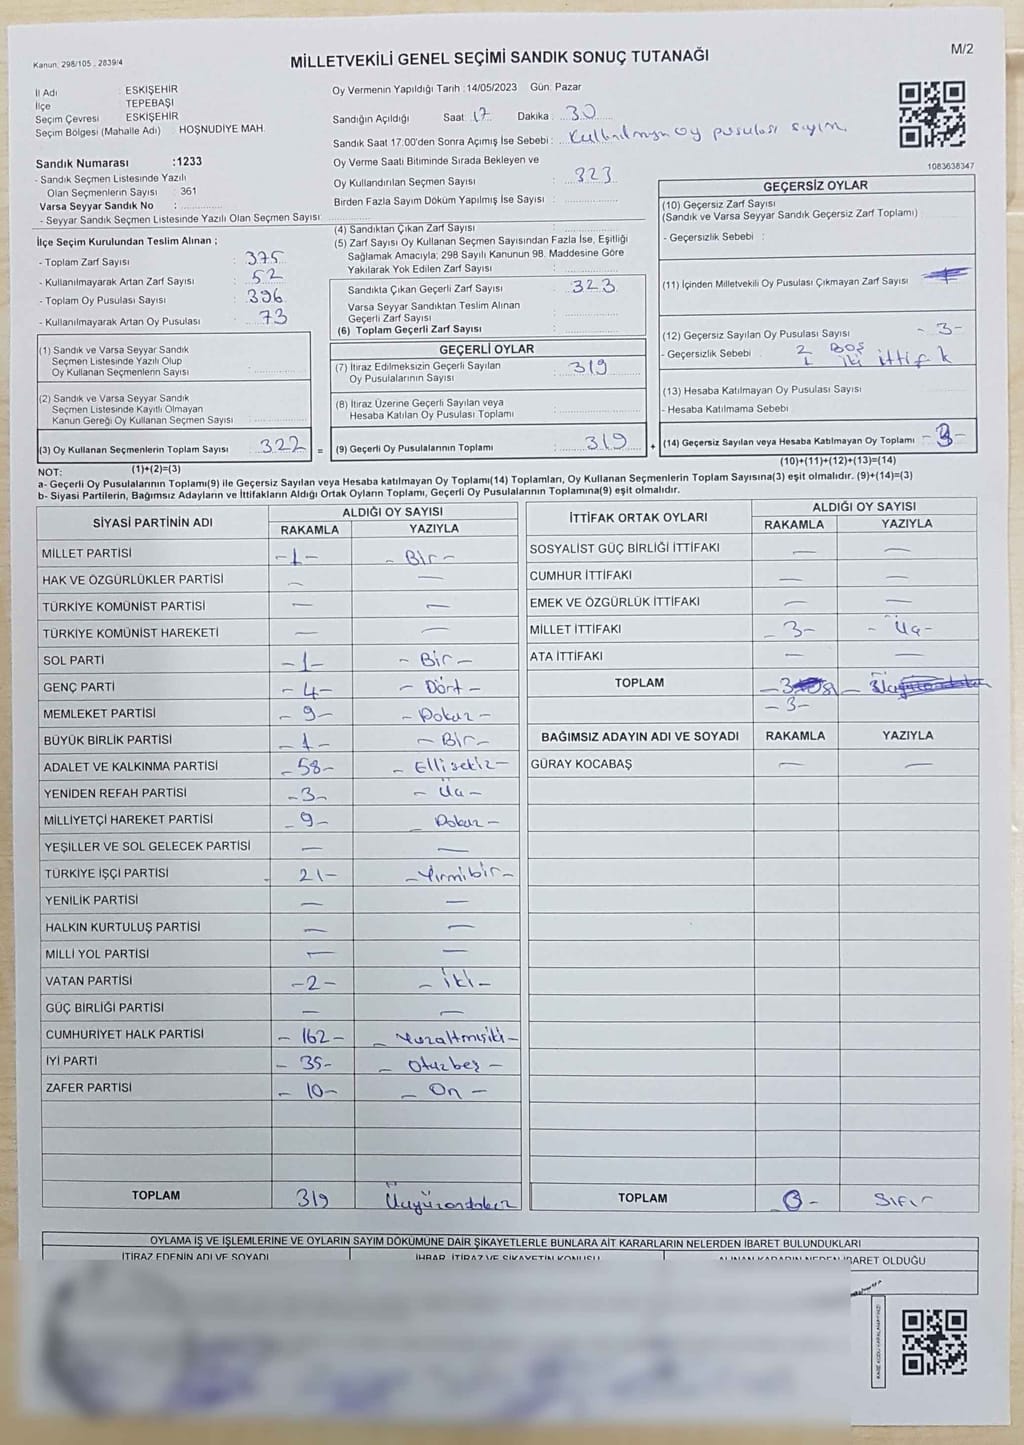 Kanun: 298/105 - 2839/4
MİLLETVEKİLİ GENEL SEÇİMİ SANDIK SONUÇ TUTANAĞI
M/2
İl Adı : ESKİŞEHİR
İlçe : TEPEBAŞI
Seçim Çevresi : ESKİŞEHİR
Seçim Bölgesi (Mahalle Adı) : HOŞNUDİYE MAH.
Sandık Numarası :1233
- Sandık Seçmen Listesinde Yazılı
Olan Seçmenlerin Sayısı : 361
Varsa Seyyar Sandık No :
- Seyyar Sandık Seçmen Listesinde Yazılı Olan Seçmen Sayısı:
Oy Vermenin Yapıldığı Tarih :14/05/2023 Gün: Pazar
Sandığın Açıldığı Saat 17 Dakika 30
Sandık Saat 17:00'den Sonra Açımış İse Sebebi : Kullanılmayan oy pusulası sayım.
Oy Verme Saati Bitiminde Sırada Bekleyen ve
Oy Kullandırılan Seçmen Sayısı : 323
Birden Fazla Sayım Döküm Yapılmış İse Sayısı :
1083638347
İlçe Seçim Kurulundan Teslim Alınan ;
- Toplam Zarf Sayısı : 375
- Kullanılmayarak Artan Zarf Sayısı : 52
- Toplam Oy Pusulası Sayısı : 396
- Kullanılmayarak Artan Oy Pusulası : 73
(1) Sandık ve Varsa Seyyar Sandık
Seçmen Listesinde Yazılı Olup
Oy Kullanan Seçmenlerin Sayısı :
(2) Sandık ve Varsa Seyyar Sandık
Seçmen Listesinde Kayıtlı Olmayan
Kanun Gereği Oy Kullanan Seçmen Sayısı :
(3) Oy Kullanan Seçmenlerin Toplam Sayısı : 322 =
(4) Sandıktan Çıkan Zarf Sayısı :
(5) Zarf Sayısı Oy Kullanan Seçmen Sayısından Fazla İse, Eşitliği
Sağlamak Amacıyla; 298 Sayılı Kanunun 98. Maddesine Göre
Yakılarak Yok Edilen Zarf Sayısı :
Sandıkta Çıkan Geçerli Zarf Sayısı : 323
Varsa Seyyar Sandıktan Teslim Alınan
Geçerli Zarf Sayısı :
(6) Toplam Geçerli Zarf Sayısı :
GEÇERLİ OYLAR
(7) İtiraz Edilmeksizin Geçerli Sayılan
Oy Pusulalarının Sayısı : 319
(8) İtiraz Üzerine Geçerli Sayılan veya
Hesaba Katılan Oy Pusulası Toplamı :
(9) Geçerli Oy Pusulalarının Toplamı : 319 +
GEÇERSİZ OYLAR
(10) Geçersiz Zarf Sayısı
(Sandık ve Varsa Seyyar Sandık Geçersiz Zarf Toplamı) :
- Geçersizlik Sebebi :
(11) İçinden Milletvekili Oy Pusulası Çıkmayan Zarf Sayısı :
(12) Geçersiz Sayılan Oy Pusulası Sayısı : -3-
- Geçersizlik Sebebi : 2 BOŞ
1 iki ittifak
(13) Hesaba Katılmayan Oy Pusulası Sayısı
- Hesaba Katılmama Sebebi
(14) Geçersiz Sayılan veya Hesaba Katılmayan Oy Toplamı -3-
NOT: (1)+(2)=(3)
(10)+(11)+(12)+(13)=(14)
a- Geçerli Oy Pusulalarının Toplamı(9) ile Geçersiz Sayılan veya Hesaba katılmayan Oy Toplamı(14) Toplamları, Oy Kullanan Seçmenlerin Toplam Sayısına(3) eşit olmalıdır. (9)+(14)=(3)
b- Siyasi Partilerin, Bağımsız Adayların ve İttifakların Aldığı Ortak Oyların Toplamı, Geçerli Oy Pusulalarının Toplamına(9) eşit olmalıdır.
SİYASİ PARTİNİN ADI ALDIĞI OY SAYISI
RAKAMLA YAZIYLA
MİLLET PARTİSİ -1- - Bir -
HAK VE ÖZGÜRLÜKLER PARTİSİ — —
TÜRKİYE KOMÜNİST PARTİSİ — —
TÜRKİYE KOMÜNİST HAREKETİ — —
SOL PARTİ -1- - Bir -
GENÇ PARTİ - 4 - - Dört -
MEMLEKET PARTİSİ - 9 - - Dokuz -
BÜYÜK BİRLİK PARTİSİ -1- - Bir -
ADALET VE KALKINMA PARTİSİ -58- - Ellisekiz -
YENİDEN REFAH PARTİSİ -3- - Üç -
MİLLİYETÇİ HAREKET PARTİSİ -9- - Dokuz -
YEŞİLLER VE SOL GELECEK PARTİSİ — —
TÜRKİYE İŞÇİ PARTİSİ - 21- - Yirmibir -
YENİLİK PARTİSİ — —
HALKIN KURTULUŞ PARTİSİ — —
MİLLİ YOL PARTİSİ — —
VATAN PARTİSİ -2- - İki -
GÜÇ BİRLİĞİ PARTİSİ — —
CUMHURİYET HALK PARTİSİ - 162 - - Yüzaltmışiki -
İYİ PARTİ - 35- - Otuzbeş -
ZAFER PARTİSİ - 10 - - On -
TOPLAM 319 Üçyüzondokuz
İTTİFAK ORTAK OYLARI ALDIĞI OY SAYISI
RAKAMLA YAZIYLA
SOSYALİST GÜÇ BİRLİĞİ İTTİFAKI — —
CUMHUR İTTİFAKI — —
EMEK VE ÖZGÜRLÜK İTTİFAKI — —
MİLLET İTTİFAKI - 3 - - Üç -
ATA İTTİFAKI — —
TOPLAM
- 3 -
BAĞIMSIZ ADAYIN ADI VE SOYADI RAKAMLA YAZIYLA
GÜRAY KOCABAŞ — —
TOPLAM 0 - Sıfır
OYLAMA İŞ VE İŞLEMLERİNE VE OYLARIN SAYIM DÖKÜMÜNE DAİR ŞİKAYETLERLE BUNLARA AİT KARARLARIN NELERDEN İBARET BULUNDUKLARI
İTİRAZ EDENİN ADI VE SOYADI İHBAR, İTİRAZ VE ŞİKAYETİN KONUSU ALINAN KARARIN NEDEN İBARET OLDUĞU